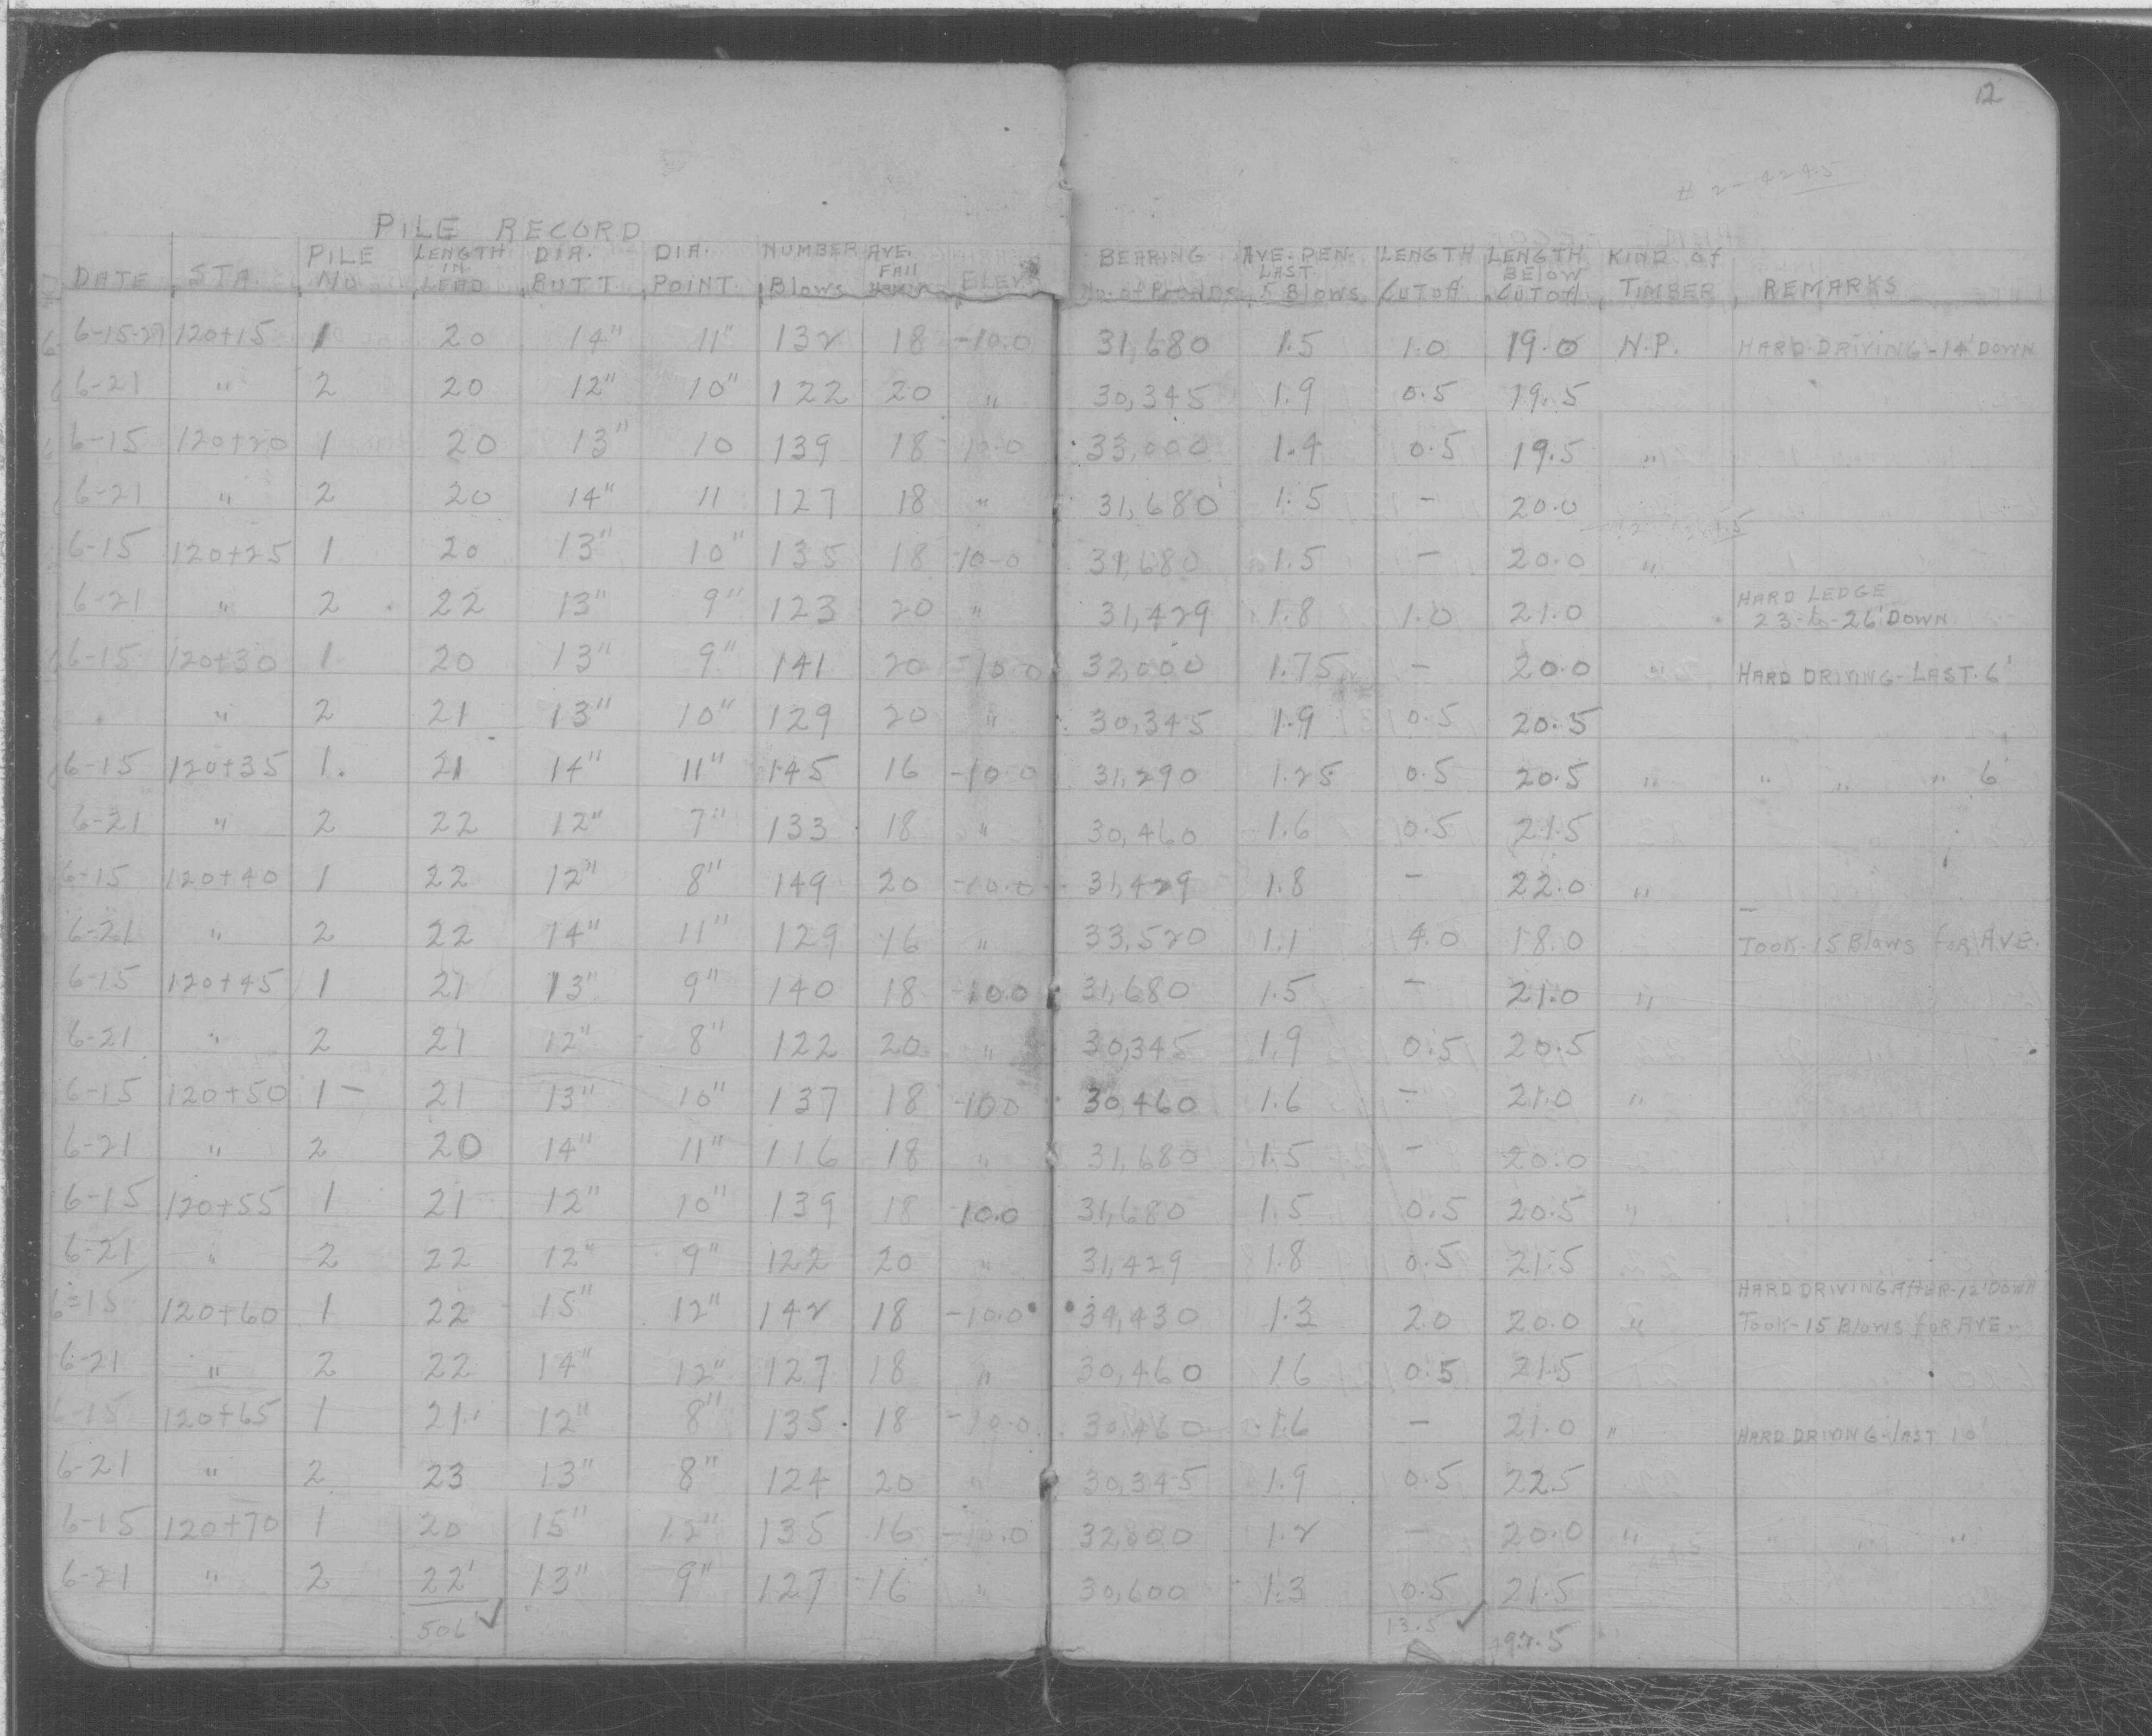 12
# 2 - 424.5
PILE RECORD
DATE STA. PILE NO LENGTH IN LEAD DIA. BUTT DIA. POINT. NUMBER Blows AVE. FAll ELEV. BEARING No. of Pounds AVE. PEN. LAST 5 Blows LENGTH CUTOff LENGTH BElow CUTOff KIND of TIMBER REMARKS
6-15-29 120+15 1 20 14" 11" 132 18 -10.0 31,680 1.5 1.0 19.0 N.P. HARD DRIVING-14' DOWN
6-21 " 2 20 12" 10" 122 20 " 30,345 1.9 0.5 19.5
6-15 120+20 1 20 13" 10 139 18 -10.0 33,000 1.4 0.5 19.5 "
6-21 " 2 20 14" 11 127 18 " 31,680 1.5 - 20.0
6-15 120+25 1 20 13" 10" 135 18 -10.0 31,680 1.5 - 20.0 "
6-21 " 2 22 13" 9" 123 20 " 31,429 1.8 1.0 21.0 HARD LEDGE
23-to-26' DOWN
6-15 120+30 1 20 13" 9" 141 20 -10.0 32,000 1.75 - 20.0 " HARD DRIVING-LAST. 6'
" 2 21 13" 10" 129 20 " 30,345 1.9 0.5 20.5
6-15 120+35 1. 21 14" 11" 145 16 -10.0 31,290 1.25 0.5 20.5 " " " " 6'
6-21 " 2 22 12" 7" 133 18 " 30,460 1.6 0.5 21.5
6-15 120+40 1 22 12" 8" 149 20 -10.0 31,429 1.8 - 22.0 "
6-21 " 2 22 14" 11" 129 16 " 33,520 1.1 4.0 18.0 Took-15 Blows foR AVE.
6-15 120+45 1 21 13" 9" 140 18 -10.0 31,680 1.5 - 21.0 "
6-21 " 2 21 12" 8" 122 20 " 30,345 1.9 0.5 20.5
6-15 120+50 1- 21 13" 10" 137 18 -10.0 30,460 1.6 - 21.0 "
6-21 " 2 20 14" 11" 116 18 " 31,680 1.5 - 20.0
6-15 120+55 1 21 12" 10" 139 18 10.0 31,680 1.5 0.5 20.5 "
6-21 " 2 22 12" 9" 122 20 " 31,429 1.8 0.5 21.5
HARD DRIVING AftER-12' DOWN
6-15 120+60 1 22 15" 12" 142 18 -10.0 34,430 1.3 2.0 20.0 " Took-15 Blows foR AVE.
6-21 " 2 22 14" 12" 127 18 " 30,460 1.6 0.5 21.5
6-15 120+65 1 21 12" 8" 135 18 -10.0 30,460 1.6 - 21.0 " HARD DRIVING-lAST 10'
6-21 " 2 23 13" 8" 124 20 " 30,345 1.9 0.5 22.5
6-15 120+70 1 20 15" 12" 135 16 -10.0 32,000 1.2 - 20.0 " " " "
6-21 " 2 22' 13" 9" 127 16 " 30,600 1.3 0.5 21.5
506 ✓ 13.5 ✓